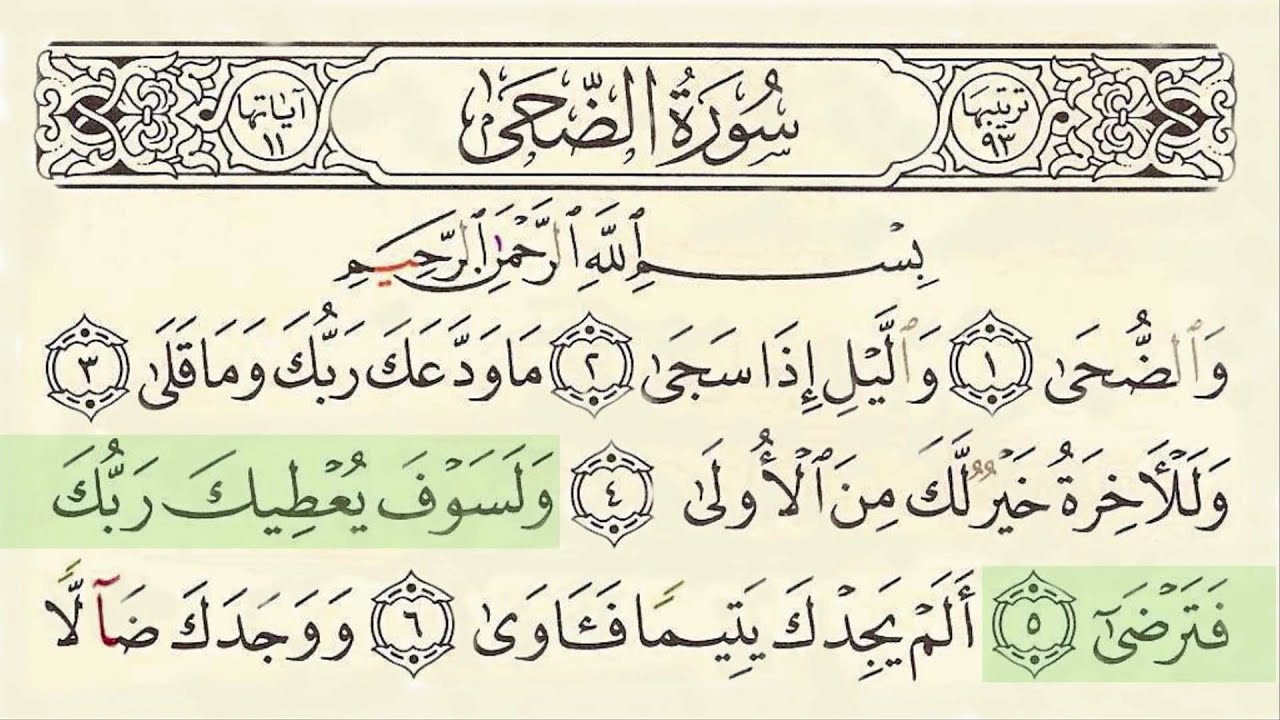 ترتيبها ٩٣ سُورَةُ الضُّحَىٰ آياتها ١١
بِسْمِ ٱللَّهِ ٱلرَّحْمَٰنِ ٱلرَّحِيمِ
وَٱلضُّحَىٰ ١ وَٱلَّيْلِ إِذَا سَجَىٰ ٢ مَا وَدَّعَكَ رَبُّكَ وَمَا قَلَىٰ ٣
وَلَلْـَٔاخِرَةُ خَيْرٌ لَّكَ مِنَ ٱلْأُولَىٰ ٤ وَلَسَوْفَ يُعْطِيكَ رَبُّكَ
فَتَرْضَىٰٓ ٥ أَلَمْ يَجِدْكَ يَتِيمًا فَـَٔاوَىٰ ٦ وَوَجَدَكَ ضَآلًّا